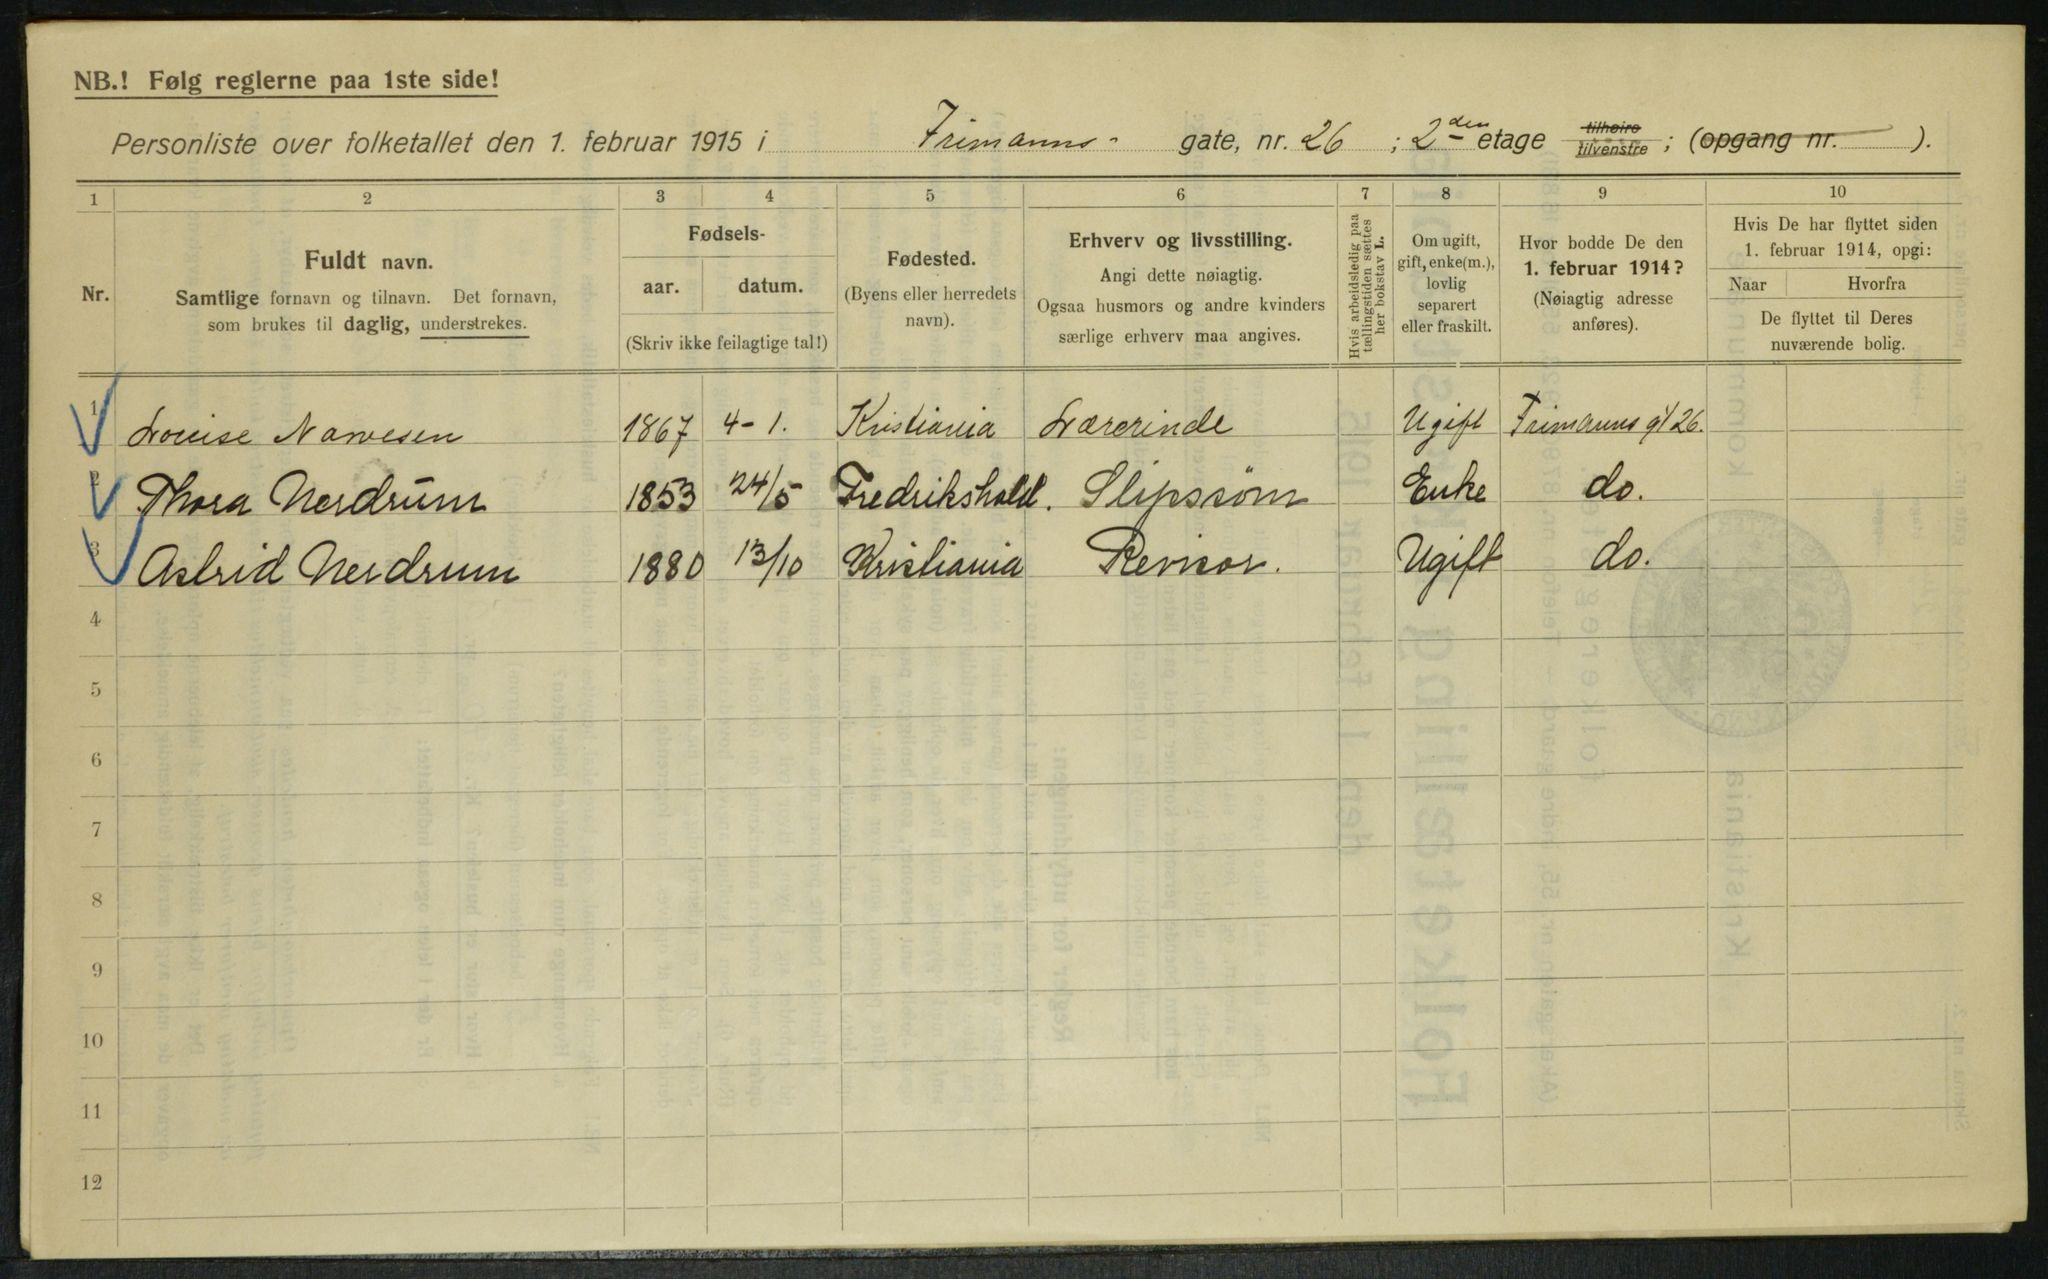 NB.! Følg reglerne paa 1ste side!
Personliste over folketallet den 1. februar 1915 i Frimanns- gate, nr. 26 ; 2den etage tilhøire tilvenstre ; (opgang nr. ).
1 2 3 4 5 6 7 8 9 10
Nr.
Fuldt navn.
Samtlige fornavn og tilnavn. Det fornavn,
som brukes til daglig, understrekes.
Fødsels-
aar. datum.
(Skriv ikke feilagtige tal!)
Fødested.
(Byens eller herredets
navn).
Erhverv og livsstilling.
Angi dette nøiagtig.
Ogsaa husmors og andre kvinders
særlige erhverv maa angives.
Hvis arbeidsledig paa
tællingstiden sættes
her bokstav L.
Om ugift,
gift, enke(m.),
lovlig
separert
eller fraskilt.
Hvor bodde De den
1. februar 1914?
(Nøiagtig adresse
anføres).
Hvis De har flyttet siden
1. februar 1914, opgi:
Naar Hvorfra
De flyttet til Deres
nuværende bolig.
1 Louise Narvesen 1867 4-1. Kristiania Lærerinde Ugift Frimanns gt 26.
2 Thora Nerdrum 1853 24/5 Fredrikshald. Slipssøm Enke do.
3 Astrid Nerdrum 1880 13/10 Kristiania Revisor. Ugift do.
4
5
6
7
8
9
10
11
12